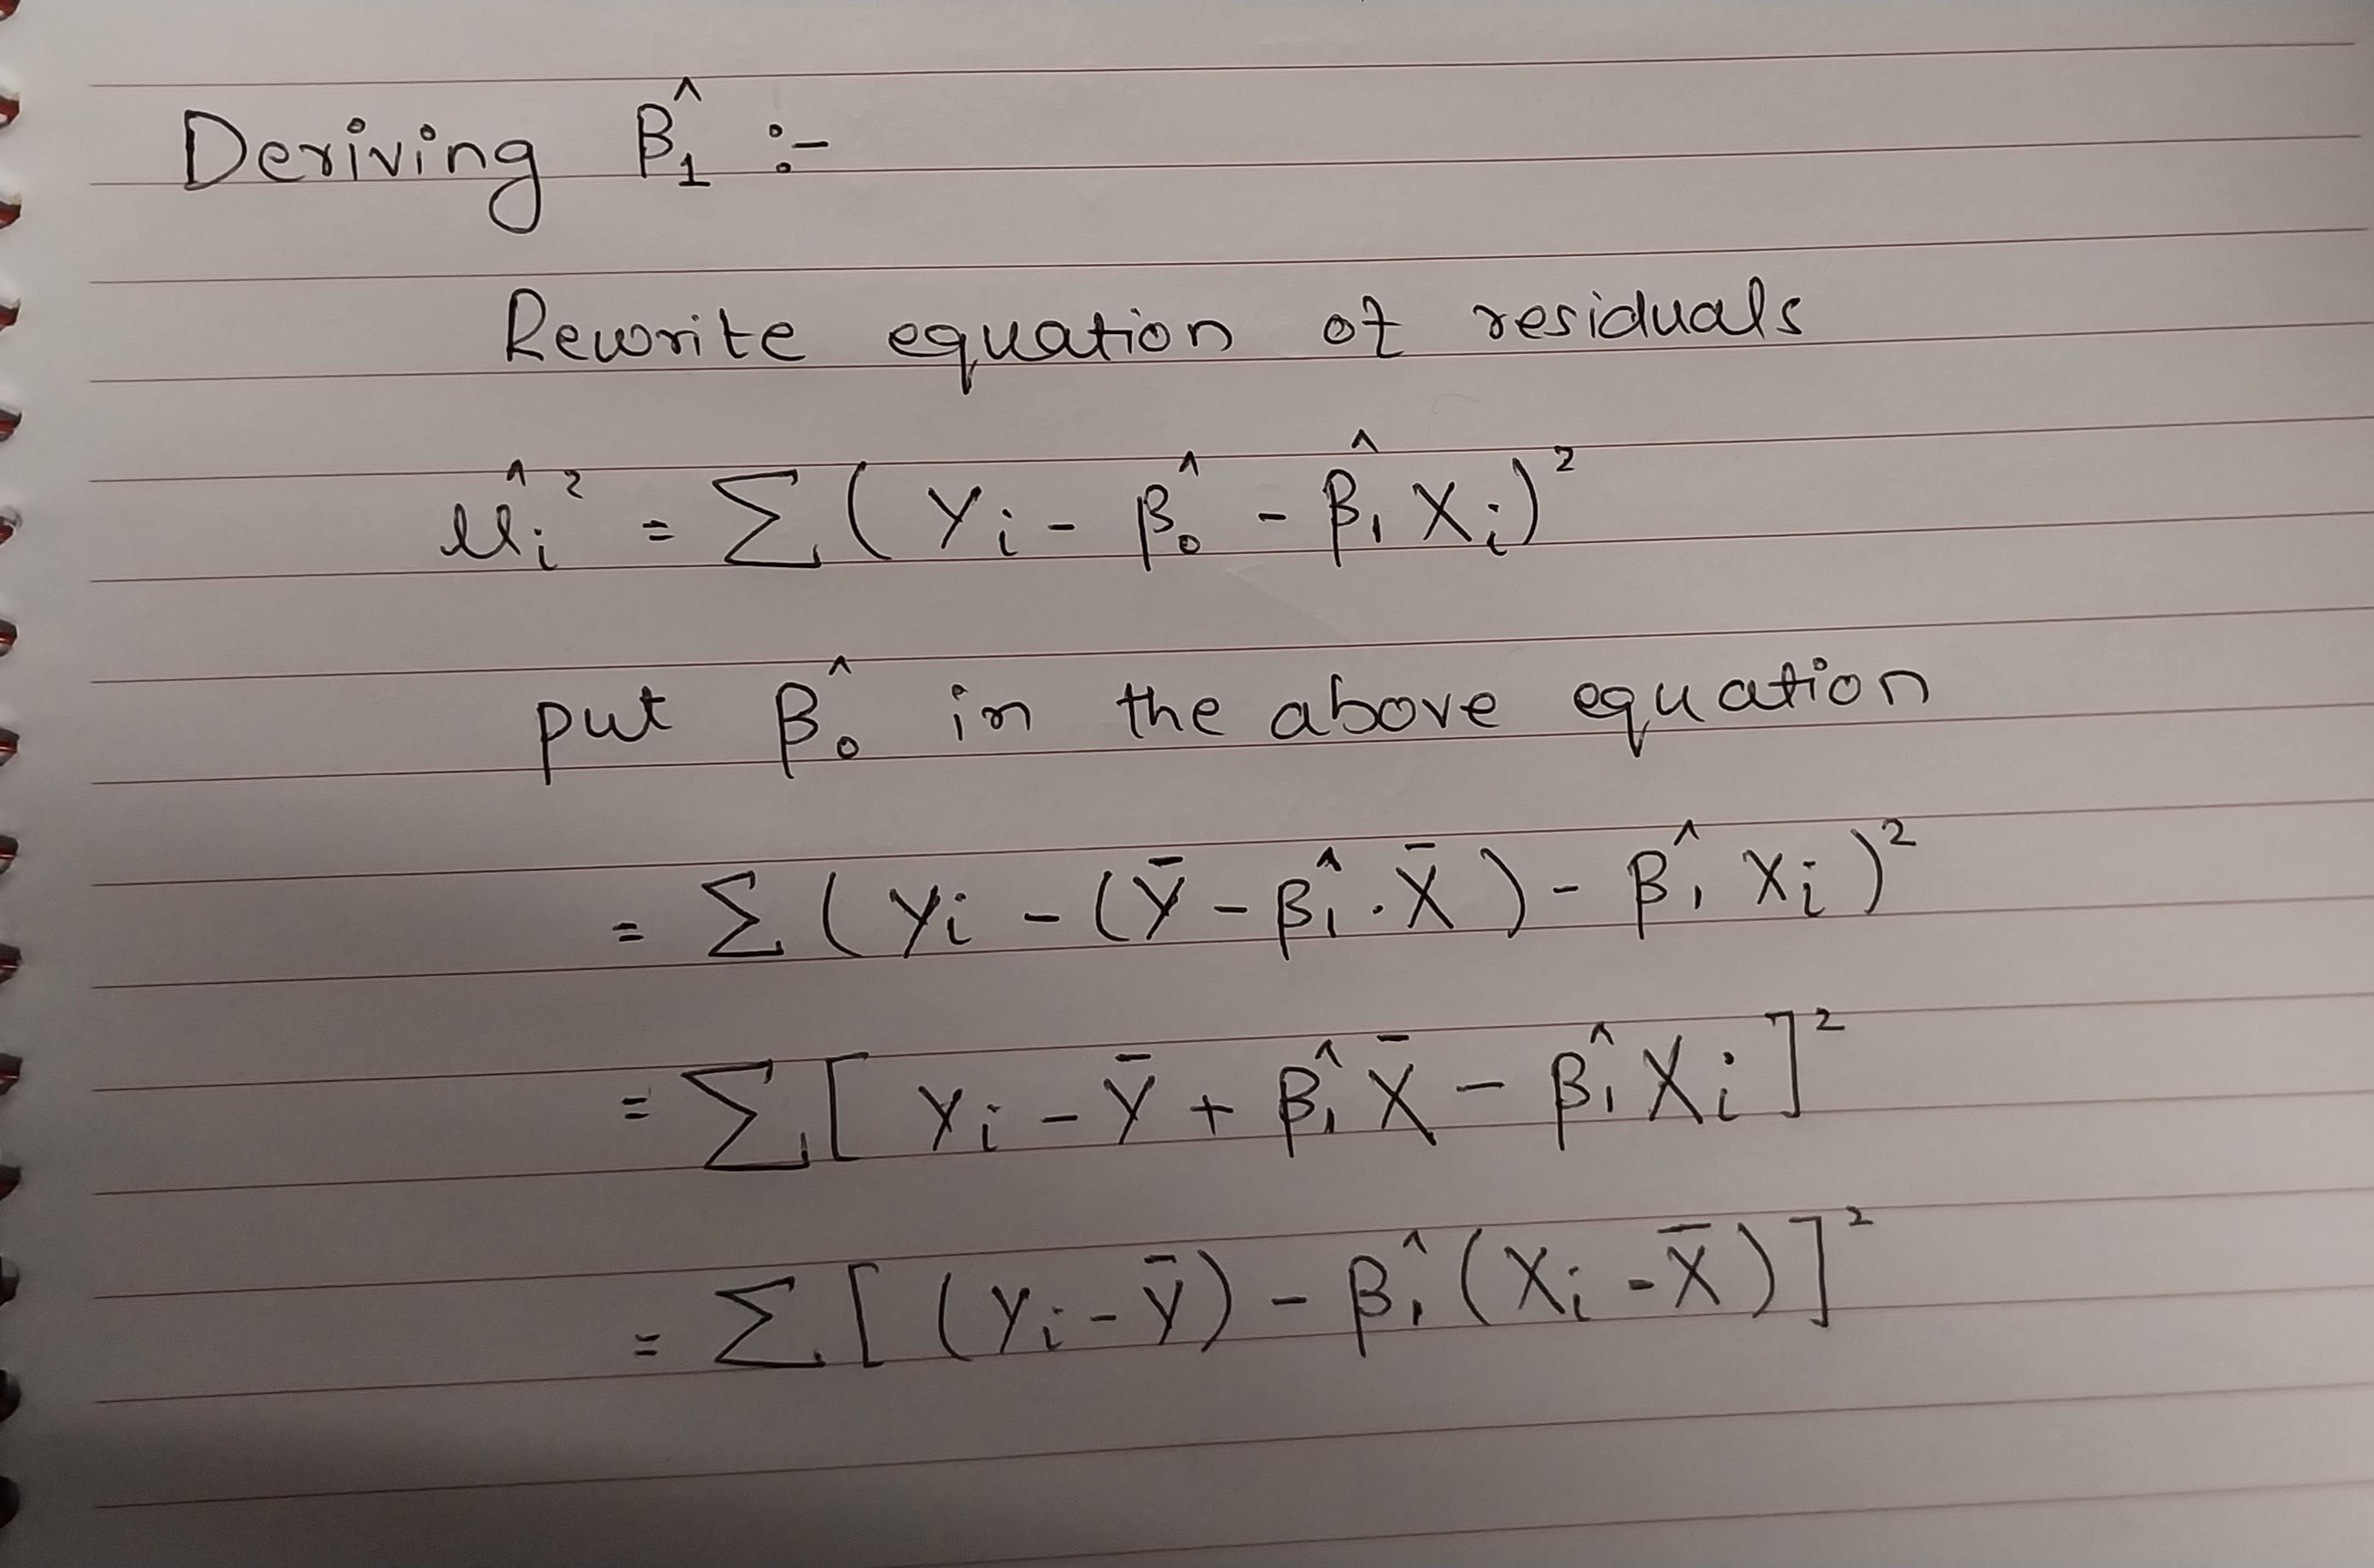 Deriving β̂₁ :-
Rewrite equation of residuals
ûᵢ² = Σ(Yᵢ - β̂₀ - β̂₁Xᵢ)²
put β̂₀ in the above equation
= Σ(Yᵢ - (Ȳ - β̂₁.X̄) - β̂₁Xᵢ)²
= Σ[Yᵢ - Ȳ + β̂₁X̄ - β̂₁Xᵢ]²
= Σ[(Yᵢ - Ȳ) - β̂₁(Xᵢ - X̄)]²